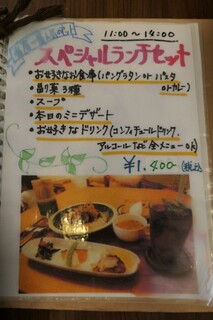 11:00～14:00
スペシャルランチセット
・お好きなお食事(パングラタン or パスタ
orカレー)
・曽り菜 3種
・スープ
・本日のミニデザート
・お好きなドリンク(コンフィチュールドリンク、
アルコールなど全メニューOK)
¥1,400-(税込)